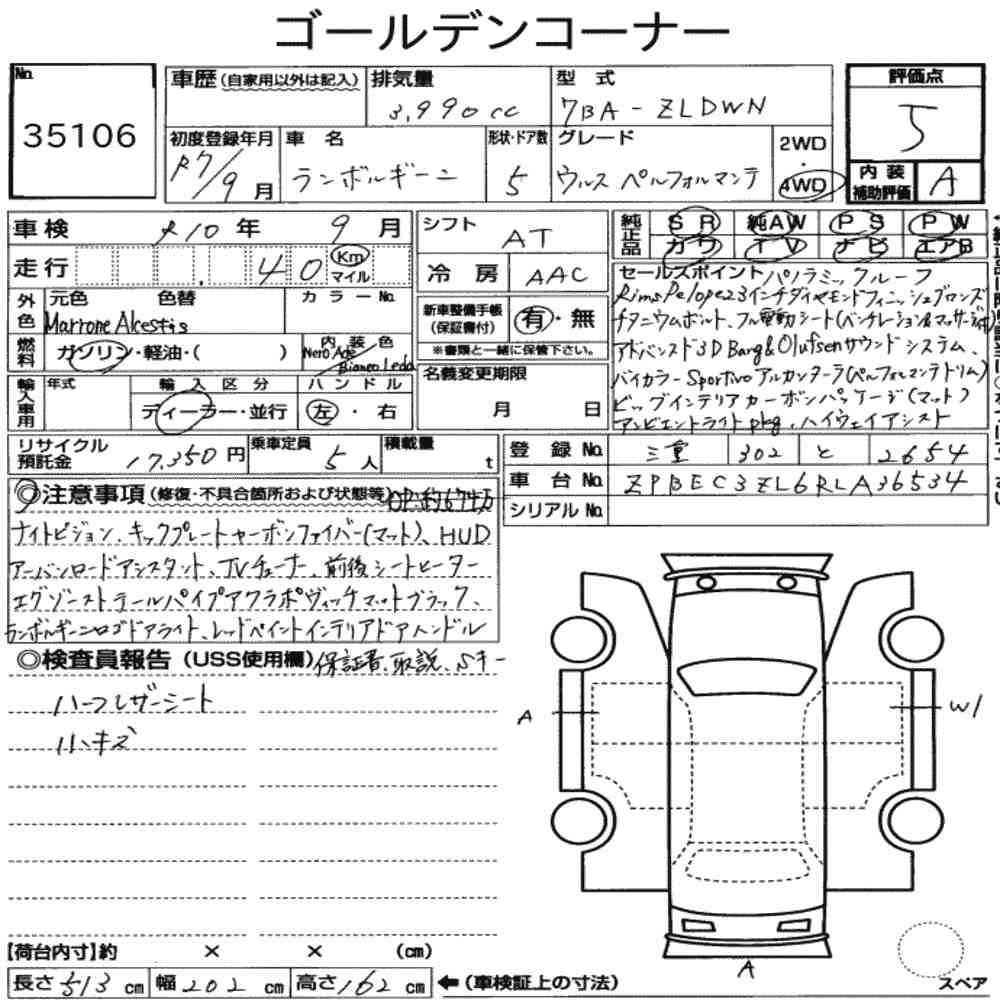 ゴールデンコーナー
No.
35106
車歴(自家用以外は記入)
排気量
3,990cc
型式
7BA-ZLDWN
評価点
5
初度登録年月
R7/9月
車名
ランボルギーニ
形状・ドア数
5
グレード
ウルス ペルフォルマンテ
2WD
・
4WD
内装
補助評価
A
車検 R10年 9月
シフト
AT
純正品
SR 純AW PS PW
カワ TV ナビ エアB
走行 40 Km マイル
冷房
AAC
セールスポイント パノラミックルーフ
Rims Pelope23インチダイヤモンドフィニッシュブロンズ
チタニウムボルト、フル電動シート(ベンチレーション&マッサージ機
アドバンスド3D Bang&Olufsenサウンドシステム、
バイカラーSportivoアルカンターラ(ペルフォルマンテトリム)
ビッグインテリアカーボンパッケージ(マット)
アンビエントライトpkg、ハイウェイアシスト
外色
元色 色替
Marrone Alcestis
カラーNo.
新車整備手帳
(保証書付)
有・無
※書類と一緒に保管下さい。
燃料
ガソリン・軽油・( )
内装色
Nero Ade
Bianco Leda
名義変更期限
月 日
輸入車用
年式
輸入区分
ディーラー・並行
ハンドル
左・右
リサイクル
預託金
17,350円
乗車定員
5人
積載量
t
登録No. 三重 302 と 2654
車台No. ZPBEC3ZL6RLA36534
シリアルNo.
◎注意事項(修復・不具合箇所および状態等) OP:約674万
ナイトビジョン、キックプレートカーボンファイバー(マット)、HUD
アーバンロードアシスタント、TVチューナー、前後シートヒーター
エグゾーストテールパイプアクラポヴィッチマットブラック、
ランボルギーニロゴドアライト、レッドペイントインテリアドアハンドル
◎検査員報告(USS使用欄) 保証書、取説、Sキー
ハーフレザーシート
小キズ
A
W1
A
【荷台内寸】約 × × (cm)
長さ513cm 幅202cm 高さ162cm ←(車検証上の寸法)
スペア